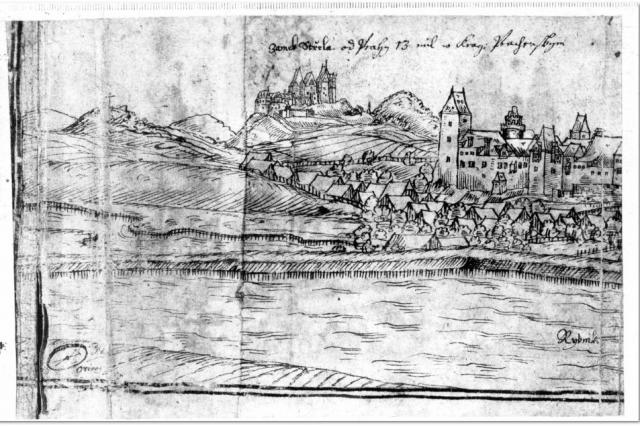 Zamek Střela od Prahy 13 mil w Kragi Prachenskym
Rybnik